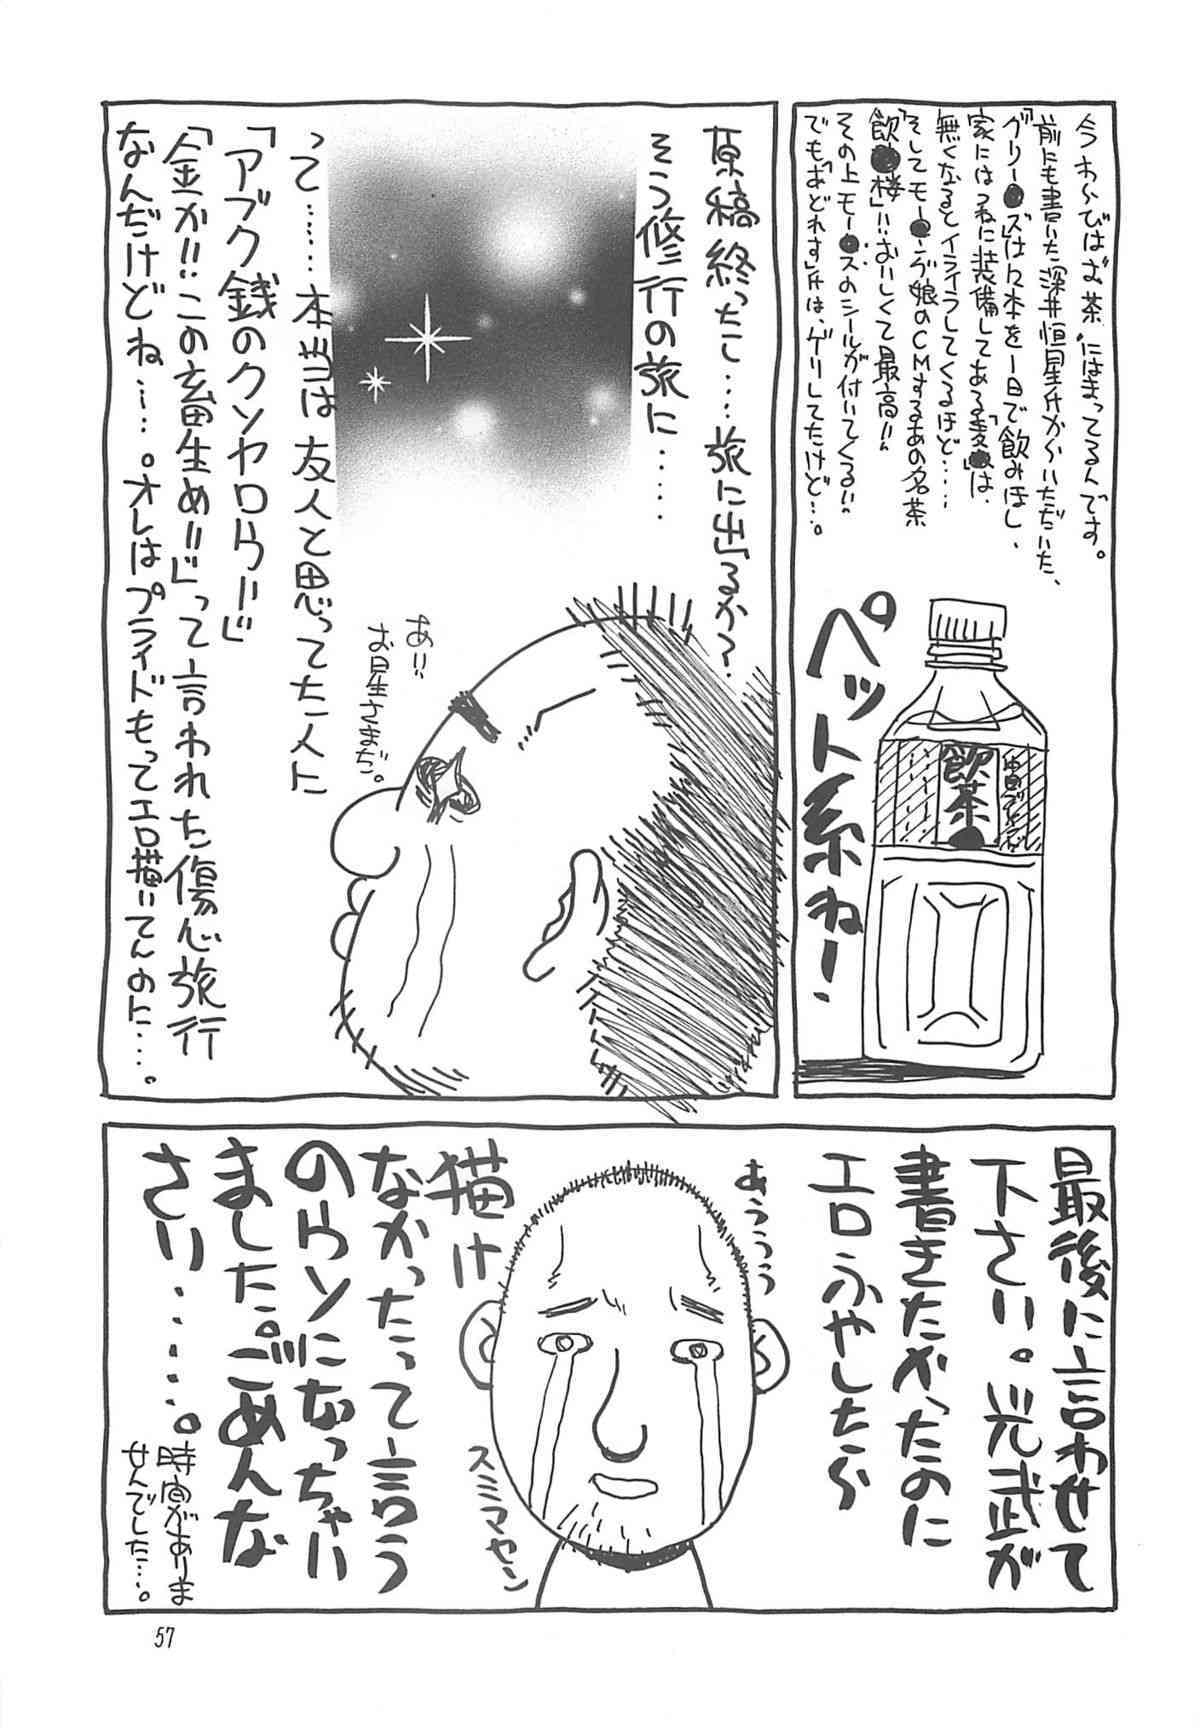 今わ〜びはば茶にはまってるんです。
前にも書いた深井恒星氏からいただいた、
「グリー●ズ」は12本を一日で飲みほし、
家にはつねに装備してある「麦●」は、
無くなるとイライラしてくるほど…。
そしてモー●ング娘のCMするあの名茶
「飲●楼」!!おいしくて最高!!
その上モー●スのシールが付いてくる!!
でも「おどれす」氏は、ゲリしてたけど…。
ペット系ねー。
飲茶●
原稿終ったし……旅に出るか?
そう修行の旅に………
あ!!
お星さまだ。
って……本当は友人と思ってた人に
「アブク銭のクソヤロウ!!」
「金か!!この畜生め!!」って言われた傷心旅行
なんだけどね……。オレはプライドもってエロ描いてんのに……。
最後に言わせて
下さい。光武が
書きたかったのに
エロふやしたら
あううう
描け
なかったって言う
のウソになっちゃい
ました。ごめんな
さい……。
スミマセン
時間がありま
せんでした…。
57